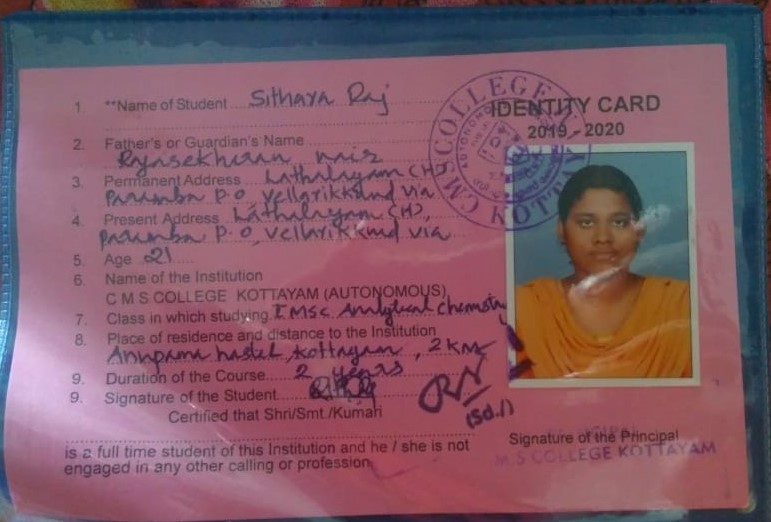 IDENTITY CARD
2019 - 2020
1 **Name of Student Sithara Raj
2. Father's or Guardian's Name
Rajasekharan nair
3. Permanent Address Lathalayam (H)
Paramba P.O Vellarikkund via
4. Present Address Lathalayam (H),
Paramba P.O, Vellarikkund via
5. Age 21
6. Name of the Institution
C M S COLLEGE KOTTAYAM (AUTONOMOUS)
7. Class in which studying I MSC Analytical chemistry
8. Place of residence and distance to the Institution
Anupama hostel, kottayam, 2 km
9. Duration of the Course 2 years
9. Signature of the Student
(Sd/)
Certified that Shri/Smt./Kumari
is a full time student of this Institution and he / she is not
engaged in any other calling or profession
Signature of the Principal
M.S COLLEGE KOTTAYAM